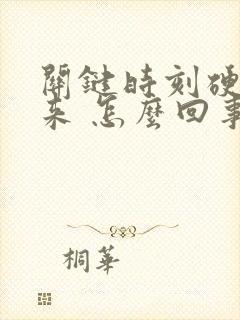 關鍵時刻硬
來 怎麼回事
桐華